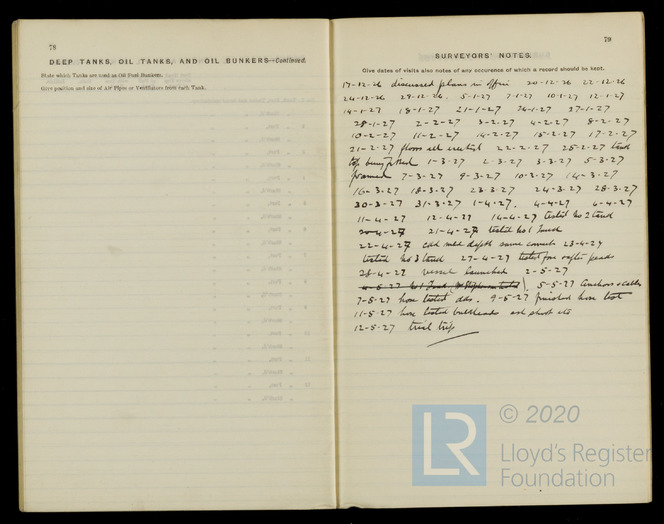 78
DEEP TANKS, OIL TANKS, AND OIL BUNKERS—Continued.
State which Tanks are used as Oil Fuel Bunkers.
Give position and size of Air Pipes or Ventilators from each Tank.
79
SURVEYORS' NOTES.
Give dates of visits also notes of any occurence of which a record should be kept.
17-12-26 discussed plans in office 20-12-26 22-12-26
24-12-26 29-12-26. 5-1-27 7-1-27 10-1-27 12-1-27
14-1-27 18-1-27 21-1-27 24-1-27 27-1-27
28-1-27 2-2-27 3-2-27 4-2-27 8-2-27
10-2-27 11-2-27 14-2-27 15-2-27 17-2-27
21-2-27 floors all erected 22-2-27 25-2-27 tank
top being 1-3-27 2-3-27 3-3-27 5-3-27
framed 7-3-27 9-3-27 10-3-27 14-3-27
16-3-27 18-3-27 23-3-27 24-3-27 28-3-27
30-3-27 31-3-27 1-4-27. 4-4-27 6-4-27
11-4-27 12-4-27 14-4-27 tested No 2 tank
20-4-27 21-4-27 tested No 1 tank
22-4-27 depth same correct 23-4-27
tested No 3 tank 27-4-27 tested fore & after peaks
28-4-27 vessel launched 2-5-27
4-5-27 No 1 Tank 5-5-27 Anchors & cables
7-5-27 hose tested dks. 9-5-27 finished hose test
11-5-27 hose tested bulkheads ash shoot etc
12-5-27 trial trip
LR © 2020
Lloyd's Register
Foundation